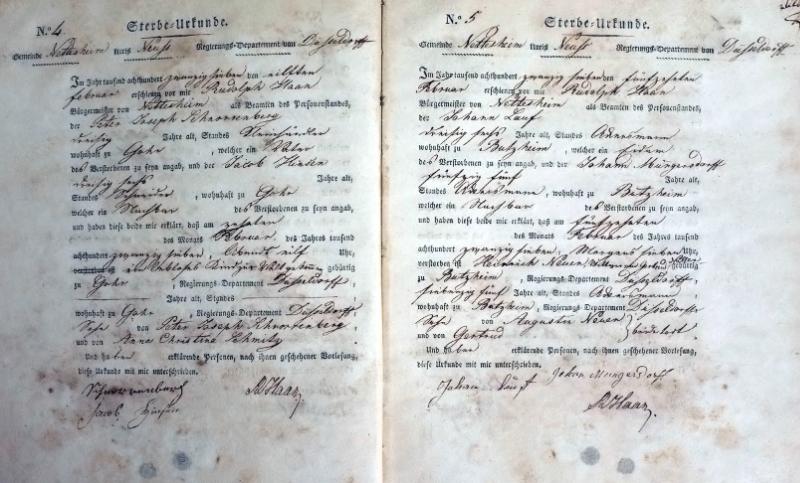 N.º 4
Sterbe-Urkunde.
Gemeinde Nettesheim Kreis Neuß Regierungs-Departement von Düsseldorff
Im Jahr tausend achthundert zwanzig sieben den eilften
Februar erschienen vor mir Rudolph Haan
Bürgermeister von Nettesheim als Beamten des Personenstandes,
der Peter Joseph Schnorrenberg
dreißig Jahre alt, Standes
wohnhaft zu Gohr, welcher ein Vater
des Verstorbenen zu seyn angab, und der Jacob Hinsen
dreißig sechs Jahre alt,
Standes Schneider, wohnhaft zu Gohr
welcher ein Nachbar des Verstorbenen zu seyn angab,
und haben diese beide mir erklärt, daß am zehnten
des Monats Februar des Jahres tausend
achthundert zwanzig sieben, Abends eilf Uhr,
verstorben ist ein lebloses Kind zur Welt gekommen gebürtig
zu Gohr, Regierungs-Departement Düsseldorff
Jahre alt, Standes
wohnhaft zu Gohr, Regierungs-Departement Düsseldorff
Sohn von Peter Joseph Schnorrenberg,
und von Anna Christina Schmitz
Und haben erklärende Personen, nach ihnen geschehener Vorlesung,
diese Urkunde mit mir unterschrieben.
Schnorrenberg
Jacob Hinsen
RHaan
N.º 5
Sterbe-Urkunde.
Gemeinde Nettesheim Kreis Neuß Regierungs-Departement von Düsseldorff
Im Jahr tausend achthundert zwanzig sieben den fünfzehnten
Februar erschienen vor mir Rudolph Haan
Bürgermeister von Nettesheim als Beamten des Personenstandes,
der Johann Lauf
dreißig sechs Jahre alt, Standes Ackersmann
wohnhaft zu Butzheim, welcher ein Eidam
des Verstorbenen zu seyn angab, und der Johann Müngersdorff
fünfzig fünf Jahre alt,
Standes Ackersmann, wohnhaft zu Butzheim
welcher ein Nachbar des Verstorbenen zu seyn angab,
und haben diese beide mir erklärt, daß am fünfzehnten
des Monats Februar des Jahres tausend
achthundert zwanzig sieben, Morgens sieben Uhr,
verstorben ist Heinrich Neuen gebürtig
zu Butzheim, Regierungs-Departement Düsseldorff
siebenzig fünf Jahre alt, Standes Ackersmann
wohnhaft zu Butzheim, Regierungs-Departement Düsseldorff
Sohn von Augustin Neuen
und von Gertrud
Und haben erklärende Personen, nach ihnen geschehener Vorlesung,
diese Urkunde mit mir unterschrieben.
Johann Lauf Johann Müngersdorf
RHaan